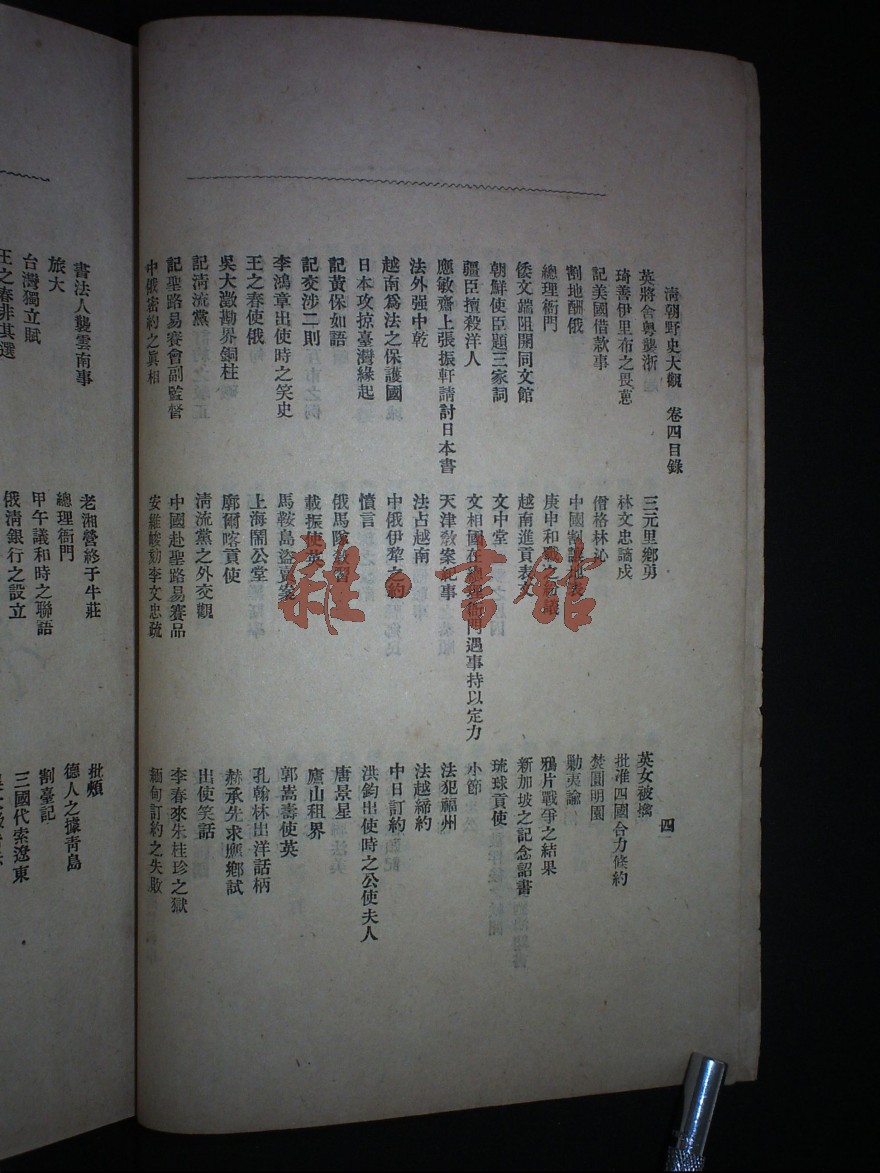 清朝野史大觀　卷四目錄　四
英將舍粵襲浙　三元里鄉勇　英女被擒
琦善伊里布之畏葸　林文忠謫戍　批准四國合力條約
記美國借款事　僧格林沁　焚圓明園
割地酬俄　中國割讓地表　勦夷論
總理衙門　庚申和戰之紛議　鴉片戰爭之結果
倭文端阻開同文館　越南進貢表文　新加坡之記念詔書
朝鮮使臣題三家詞　文中堂　琉球貢使
疆臣擅殺洋人　文相國在總理衙門遇事持以定力　小節
應敏齋上張振軒請討日本書　天津敎案紀事　法犯福州
法外强中乾　法占越南　法越締約
越南爲法之保護國　中俄伊犂之約　中日訂約
日本攻掠臺灣緣起　憤言　洪鈞出使時之公使夫人
記黃保如語　俄馬隊敎習　唐景星
記交涉二則　載振使英　廬山租界
李鴻章出使時之笑史　馬鞍島盜賣案　郭嵩燾使英
王之春使俄　上海鬧公堂　孔翰林出洋話柄
吳大澂勘界銅柱　廓爾喀貢使　赫承先求應鄉試
記淸流黨　淸流黨之外交觀　出使笑話
記聖路易賽會副監督　中國赴聖路易賽品　李春來朱桂珍之獄
中俄密約之眞相　安維峻劾李文忠疏　緬甸訂約之失敗
書法人襲雲南事　老湘營終于牛莊　批頰
旅大　總理衙門　德人之據靑島
台灣獨立賦　甲午議和時之聯語　割臺記
王之春非其選　俄淸銀行之設立　三國代索遼東
雜·書館